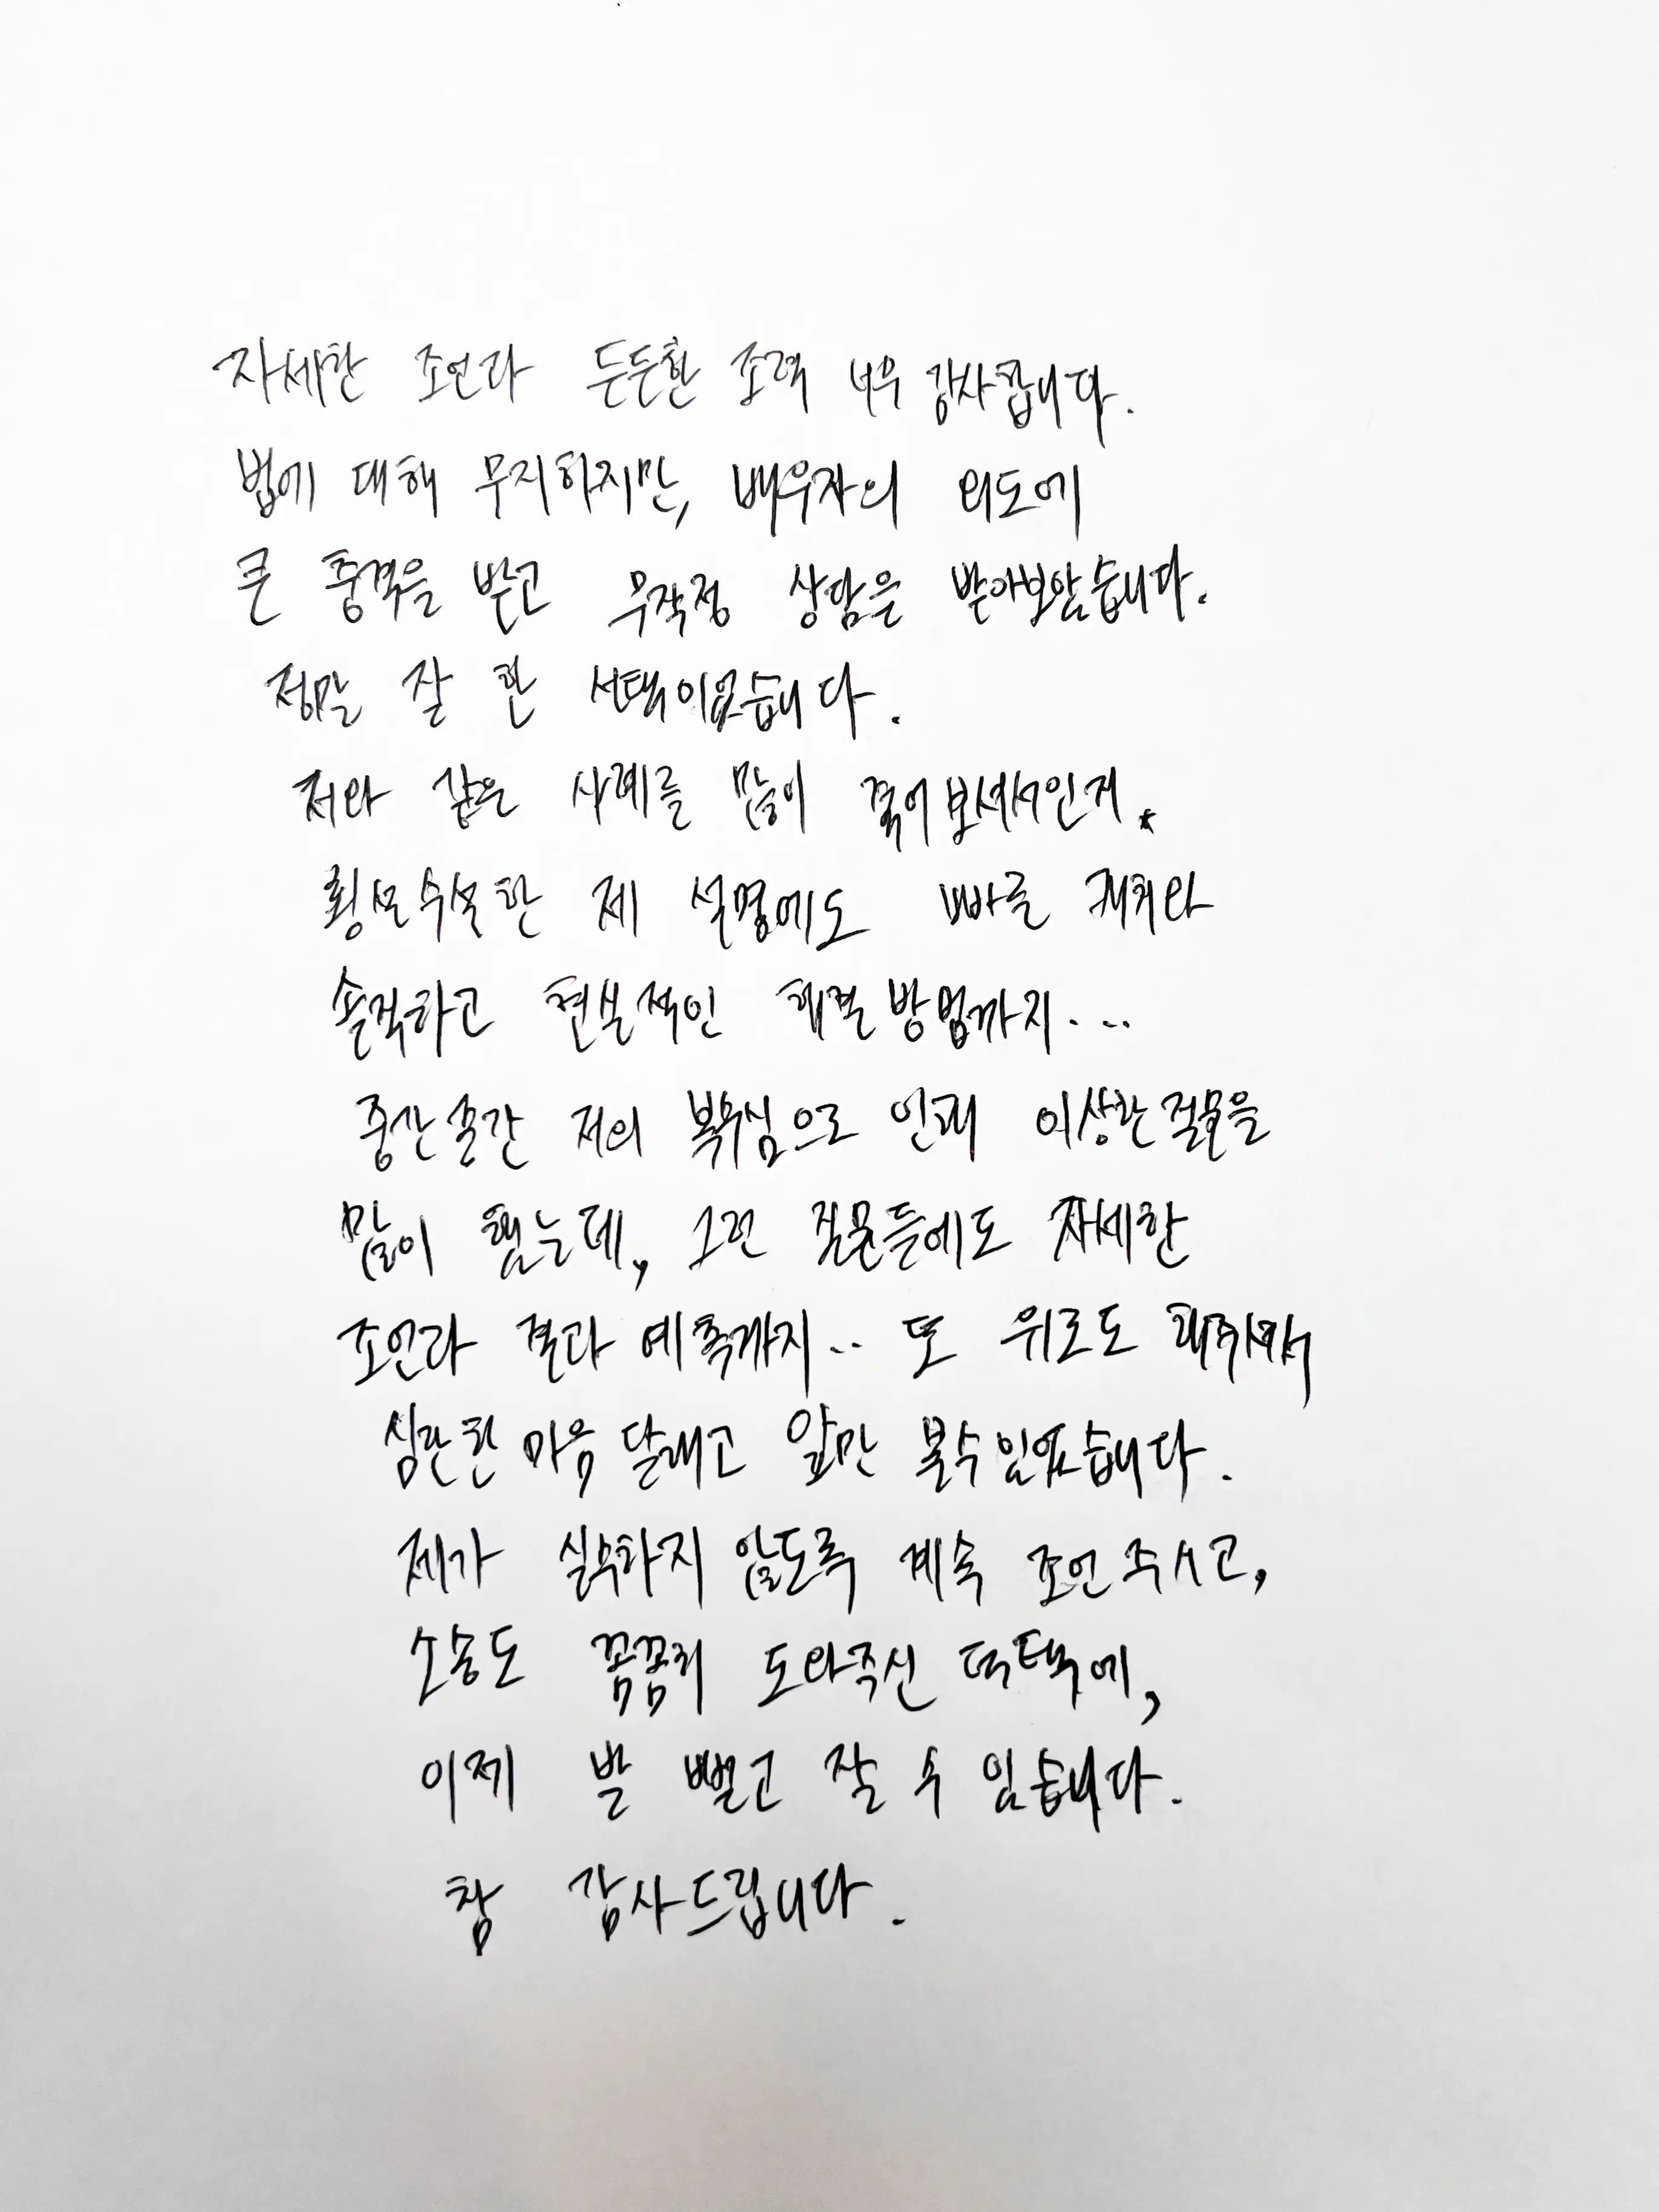 자세한 조언과 든든한 조력 너무 감사합니다.
법에 대해 무지하지만, 배우자의 외도에
큰 충격을 받고 무작정 상담을 받아보았습니다.
정말 잘 한 선택이었습니다.
저와 같은 사례를 많이 겪어보셔서인지.
횡설수설한 제 설명에도 빠른 캐치와
솔직하고 현실적인 해결방법까지...
중간중간 저의 복수심으로 인해 이상한 질문을
많이 했는데, 그런 질문들에도 자세한
조언과 결과 예측까지.. 또 위로도 해주셔서
심란한 마음 달래고 앞만 볼수있었습니다.
제가 실수하지 않도록 계속 조언 주시고,
소송도 꼼꼼히 도와주신 덕택에,
이제 발 뻗고 잘 수 있습니다.
참 감사드립니다.